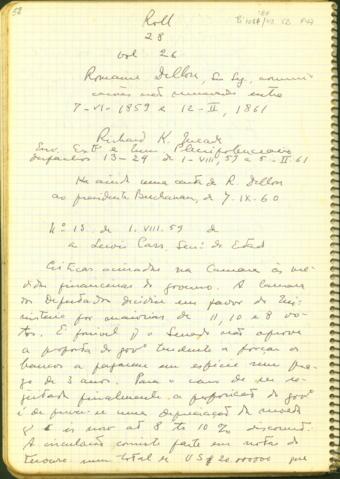 52
Roll
28
vol 26
Romaine Dillon, Sec. Leg., comuni-
cações não numeradas entre
7-VI-1859 e 12-II, 1861
Richard K. Meade
Env. Extr. e Min. Plenipotenciario
despachos 13-29 de 1-VIII, 59 a 5-II-61
Ha ainda uma carta de R. Dillon
ao presidente Buchanan, de 7-IX-60
Nº 13 de 1.VIII.59 de
a Lewis Cass, Secr. de Estad
Criticas acirradas na Camara às me-
didas financeiras do governo. A Camara
dos Deputados decidiu em favor do Mi-
nisterio por maiorias de 11, 10 e 8 vo-
tos. É possivel q o Senado não aprove
a proposta do govº tendente a forçar os
bancos a pagarem em especie num pra-
zo de 3 anos. Para o caso de ser re-
jeitada finalmente a proposição do govº
é de prever-se uma depreciação da moeda
q é is now at 8 to 10 % discount.
A circulação consiste parte em notas do
tesouro num total de US$ 20.000000 que